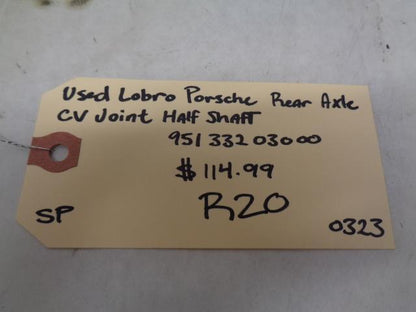 Used Lobro Porsche Rear Axle
CV Joint Half Shaft
951 332 030 00
$114.99
R20
SP
0323